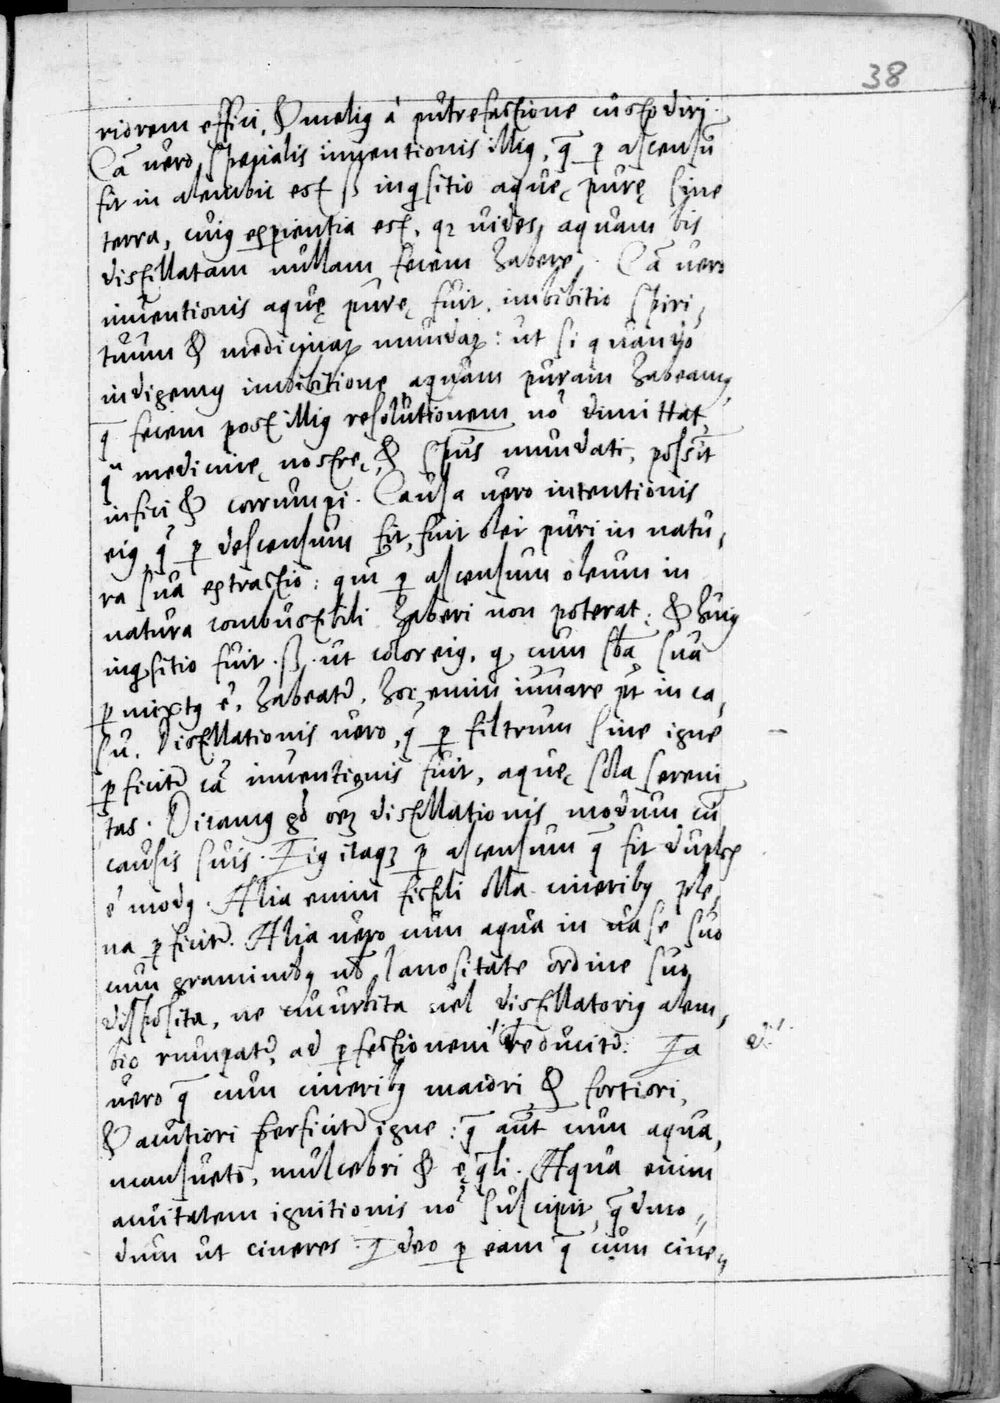 38
riorem effici, & meliꝰ à putrefactione custodiri.
Cā vero specialis inventionis illiꝰ, q̄ ꝑ ascensū
fit in alembic est ß inquisitio aquę purę sine
terra, cuiꝰ experientia est, qꝫ vides, aquam bis
distillatam nullam fecem habere. Cā vero
inventionis aquę purę fuit, imbibitio spiri,
tuum & medicinaꝝ mundaꝝ: ut si quando
indigemꝰ imbibitione aquam puram habeamꝰ,
q̄ fecem post illiꝰ resolutionem nō dimittat,
qª medicinę nostrę, & spūs mundati, possint
infici & corrumpi. Causa vero intentionis
eiꝰ q̄ ꝑ descensum fit, fuit olei puri in natu,
ra sua extractio: quū ꝑ ascensum oleum in
natura combustibili haberi non poterat: & huiꝰ
inquisitio fuit .ß. ut color eiꝰ, q cum sb̄a sua
ꝑmixtꝰ ē, habeatr̄. hoc enim iuvare pt̄ in ca,
su. Distillationis vero, q̄ ꝑ filtrum sine igne
ꝑficitr̄ cā inventionis fuit, aquę sola sereni
tas. Dicamꝰ gō oēꝫ distillationis modum cū
causis suis. Eiꝰ itaqꝫ ꝑ ascensum q̄ fit duplex
ē modꝰ. Alia enim fictili olla cineribꝰ ple,
na ꝑficitr̄. Alia vero cum aqua in vase suo
cum graminibꝰ ul̄ lanositate ordine suo
disposita, ne cucurbita vel distillatoriꝰ alem,
bic rumpatr̄, ad ꝑfectionem reducitr̄. Ea
vero q̄ cum cineribꝰ maiori & fortiori,
& acutiori perficitr̄ igne: q̄ aūt cum aqua,
mansueto, mulcebri & ęq̄li. Aqua enim
acuitatem ignitionis nō suscipit, q̄dmo,,
dum ut cineres. Ideo ꝑ eam q̄ cum cine,